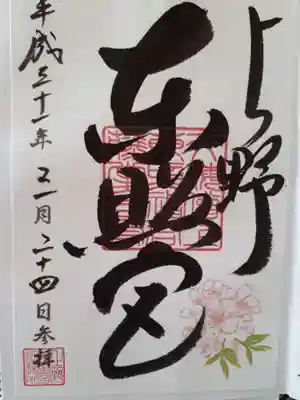 上野
東照宮
平成三十一年 月二十四日参拝